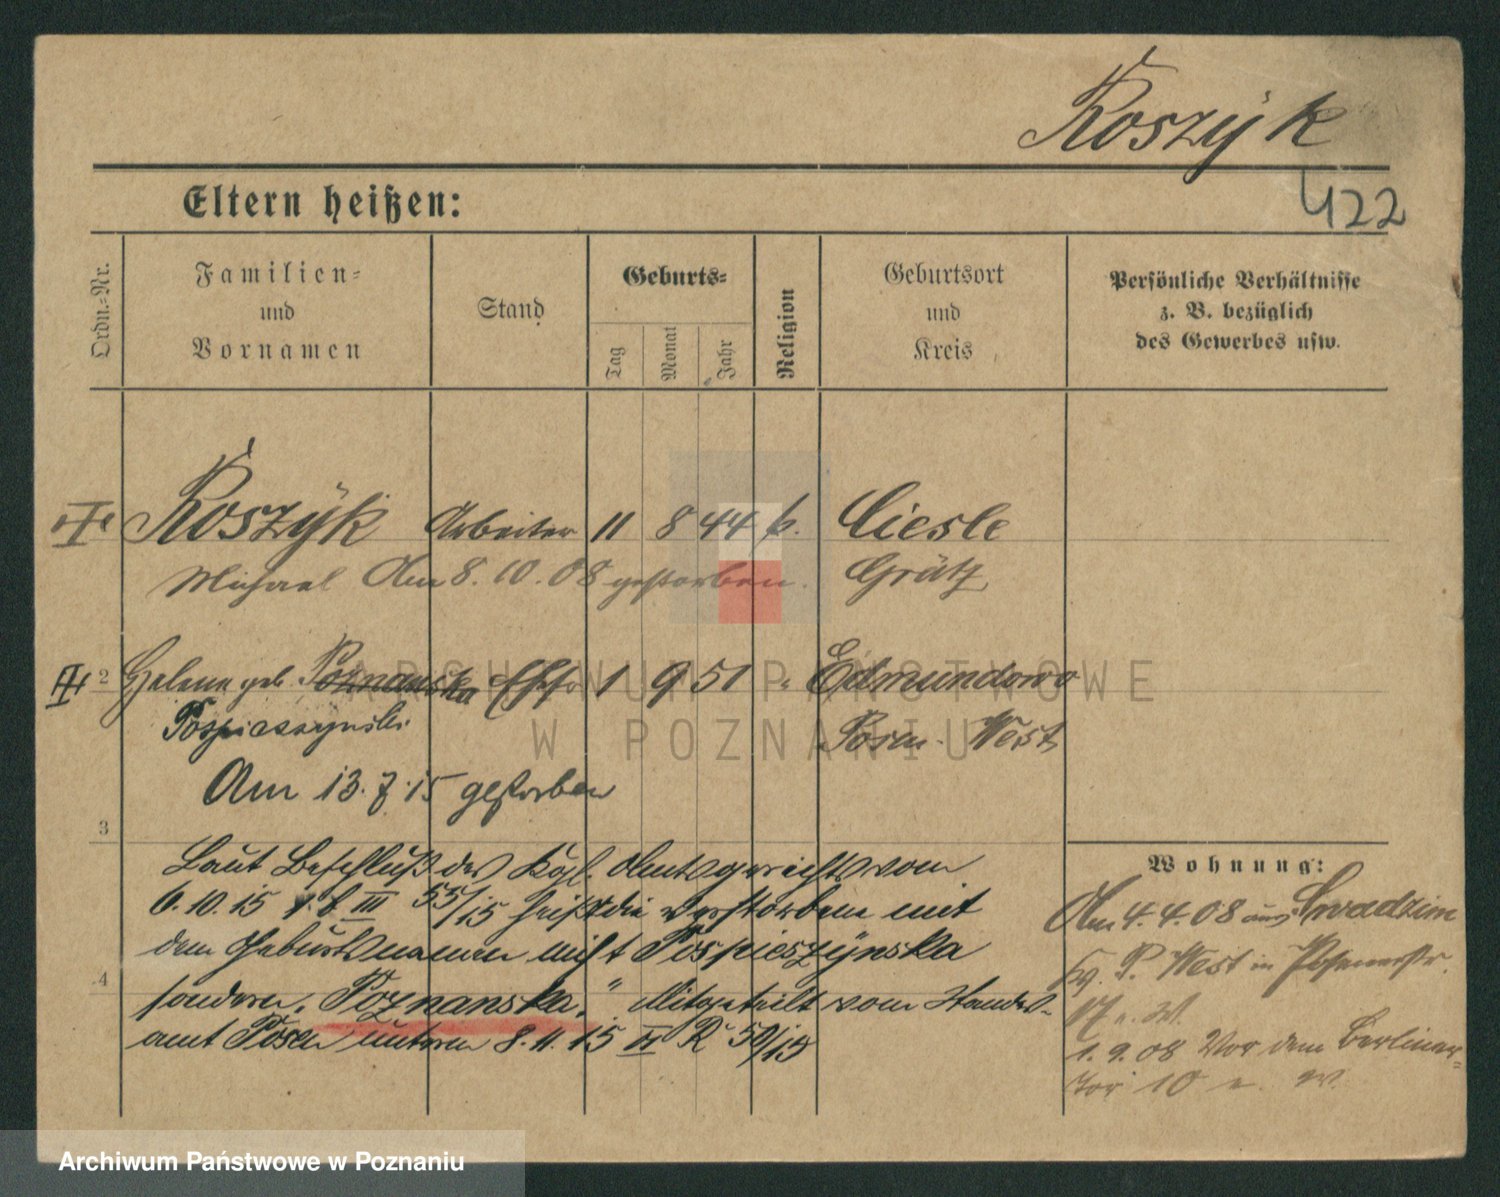 Koszÿk
422
Eltern heißen:
Ordn.-Nr.
Familien-
und
Vornamen
Stand
Geburts-
Tag
Monat
Jahr
Religion
Geburtsort
und
Kreis
Persönliche Verhältnisse
z. B. bezüglich
des Gewerbes usw.
Koszÿk Arbeiter 11 8 44 k. Ciesle
Michael Am 8. 10. 08 gestorben. Grätz
2 Helene geb. Poznanska Ehefr 1 9 51 " Edmundowo
Pospieszynski Posen West
Am 13. 7. 15 gestorben
3
Laut Beschluß des Kgl. Amtsgerichts vom
6. 10. 15 III 55/15 heißt die verstorbene mit
dem Geburtsnamen nicht Pospieszÿnska
4
sondern „Poznanska." Mitgeteilt vom Standes-
amt Posen unterm 8. 11. 15 R 50/15
Wohnung:
Am 4. 4. 08 aus Swadzim
P. West in Posenerstr.
17 a. W.
1. 9. 08 Vor dem Berliner-
Tor 10 a. W.
ARCHIWUM PAŃSTWOWE
W POZNANIU
Archiwum Państwowe w Poznaniu